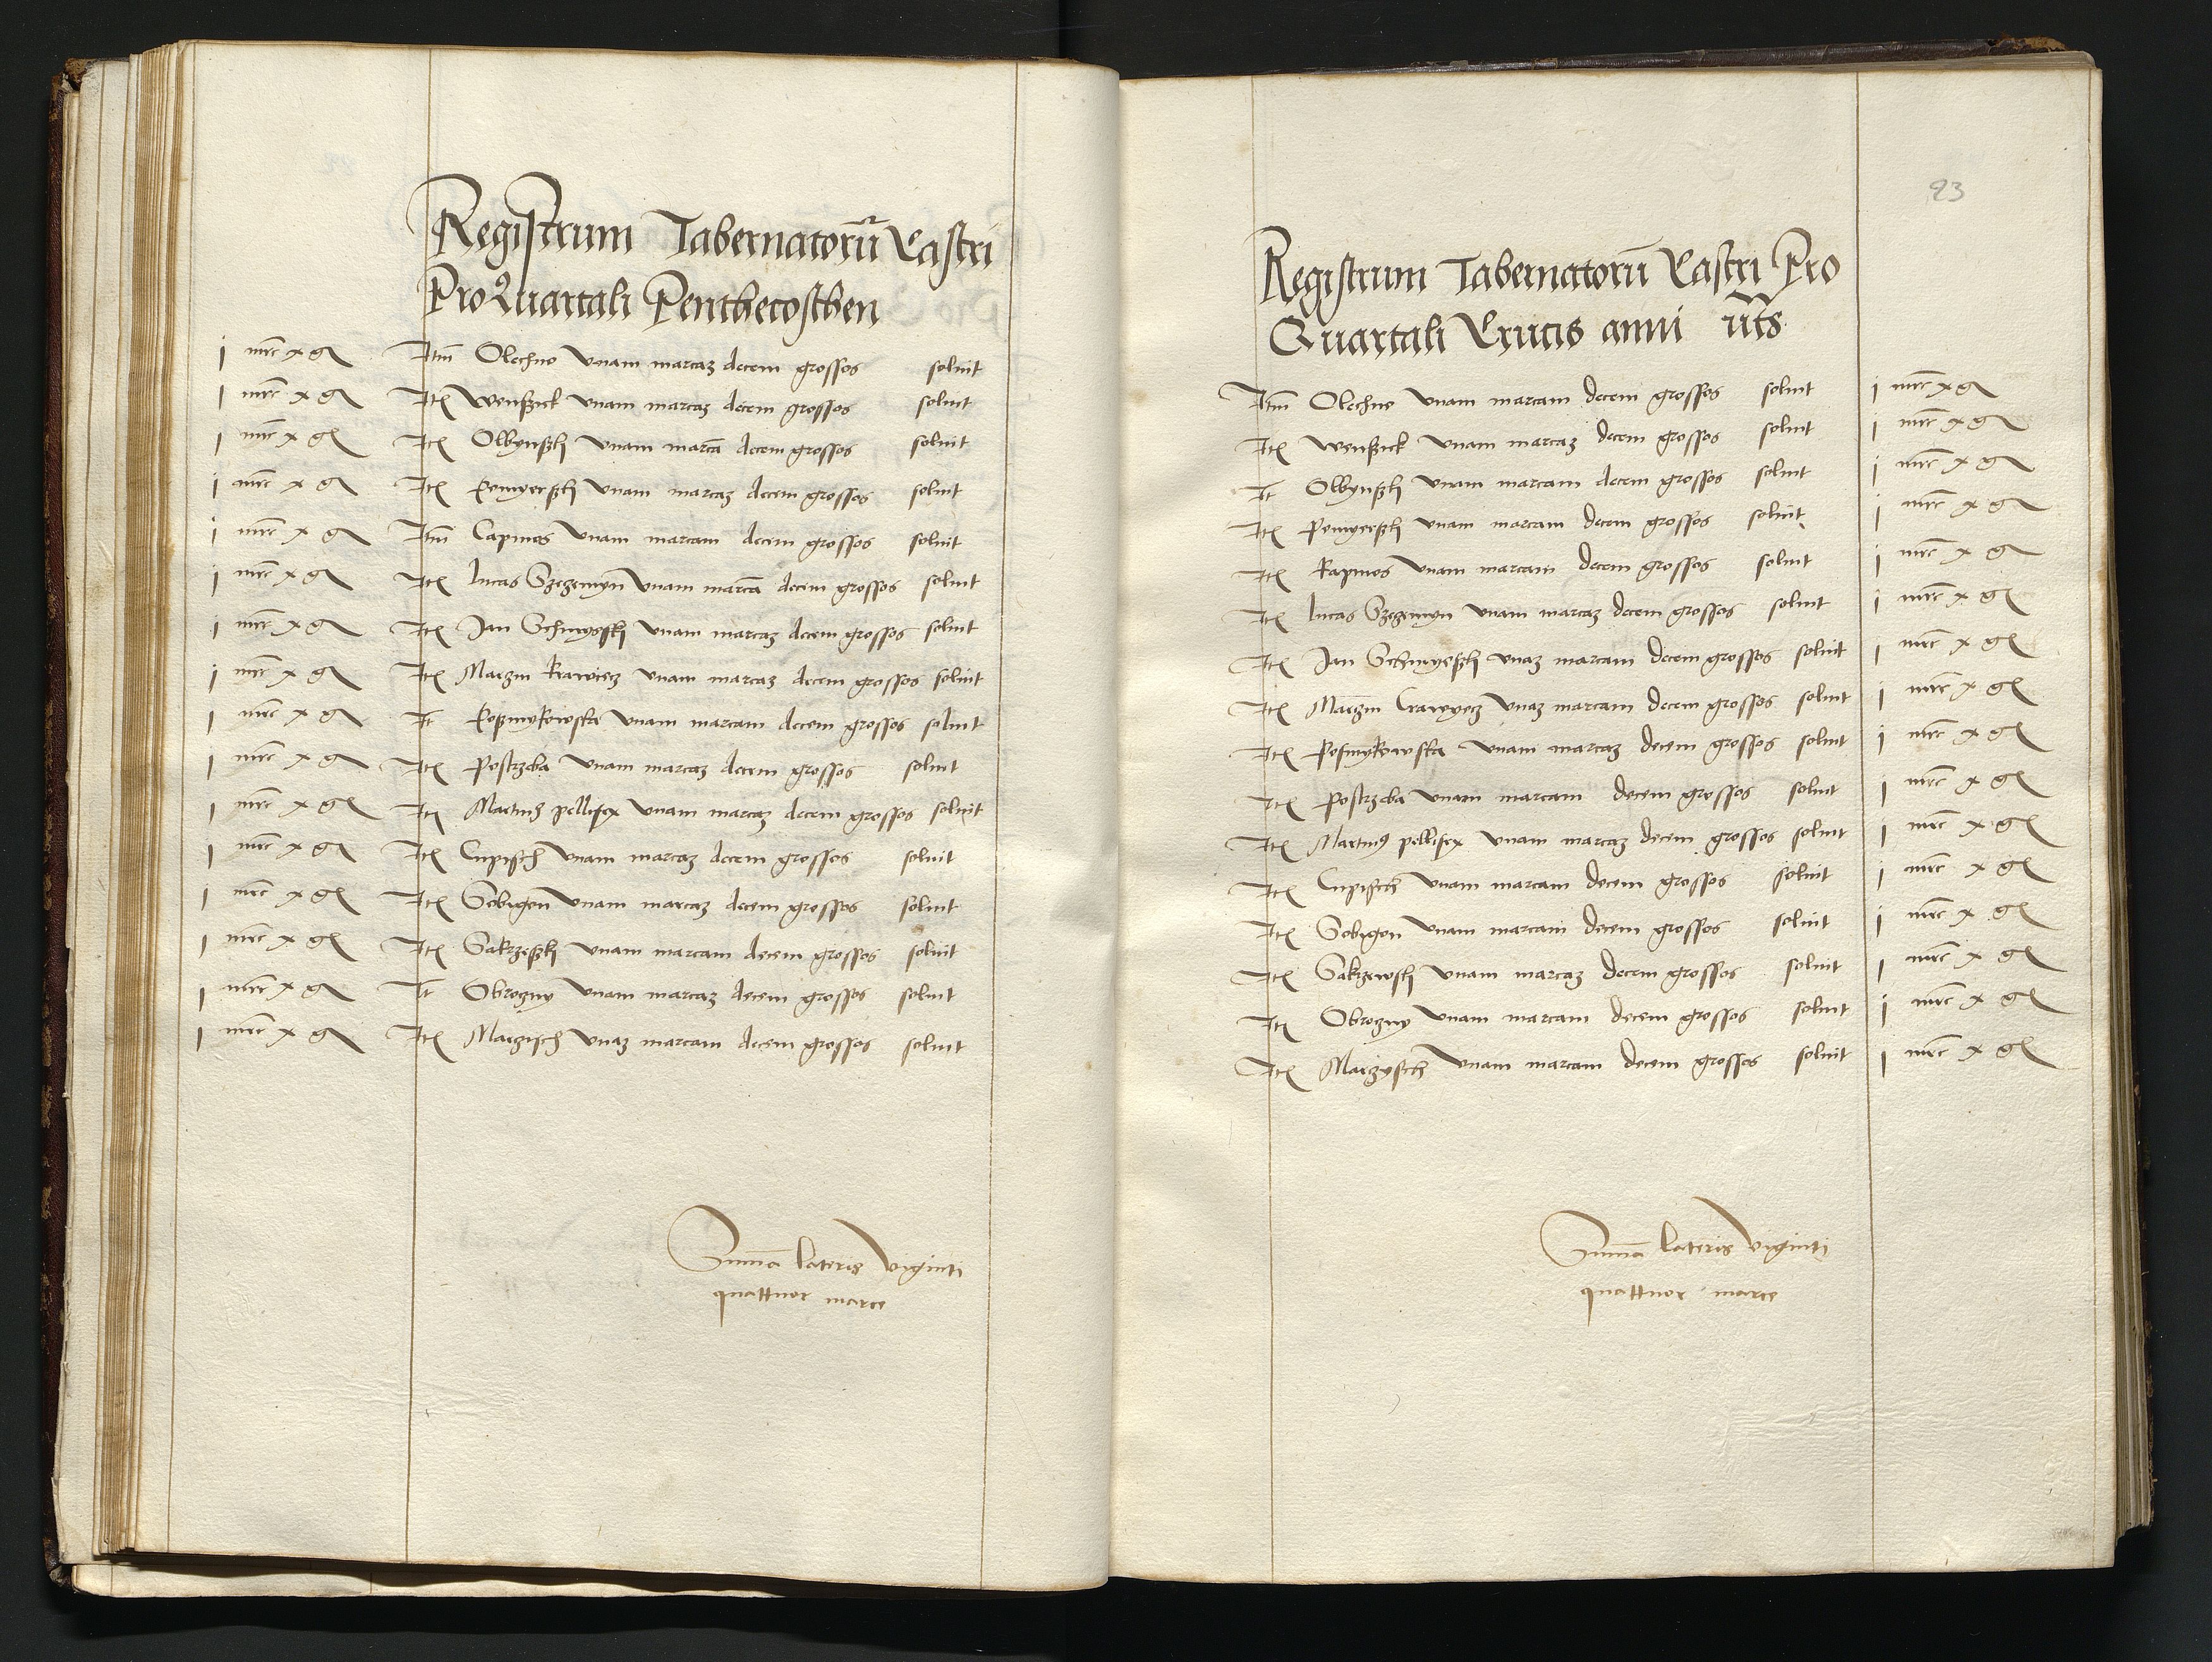 Registrum Tabernatorū Castri
Pro Quartali Penthecosthen
j mrc x gr Itm Olechno vnam marcaz decem grossos soluit
j mrc x gr Itē Wenßzick vnam marcaz decem grossos soluit
j mrc x gr Itē Olbynßky vnam marcā decem grossos soluit
j mrc x gr Itē vnam marcaz decem grossos soluit
j mrc x gr Itm Capinos vnam marcam decem grossos soluit
j mrc x gr Itē lucas vnam marcā decem grossos soluit
j mrc x gr Itē Jan vnam marcaz decem grossos soluit
j mrc x gr Itē Marzin krawiecz vnam marcaz decem grossos soluit
j mrc x gr It vnam marcam decem grossos soluit
j mrc x gr Itē Postrzeba vnam marcaz decem grossos soluit
j mrc x gr Itē Martinz pellifex vnam marcaz decem grossos soluit
j mrc x gr Itē Cupisch vnam marcaz decem grossos soluit
j mrc x gr Itē Sobigon vnam marcaz decem grossos soluit
j mrc x gr Itē Sakrzeßky vnam marcam decem grossos soluit
j mrc x gr It Obrozny vnam marcaz decem grossos soluit
j mrc x gr Itē Marzisch vnaz marcam decem grossos soluit
Summa lateris viginti
quattuor marce
23
Registrum Tabernatorū Castri Pro
Quartali Crucis anni ut s
Itm Olechno vnam marcam decem grossos soluit j mrc x gr
Itē Wenßzick vnam marcaz decem grossos soluit j mrc x gr
It Olbynßky vnam marcam decem grossos soluit j mrc x gr
Itē vnam marcam decem grossos soluit j mrc x gr
Itē kapinos vnam marcam decem grossos soluit j mrc x gr
Itē lucas vnam marcaz decem grossos soluit j mrc x gr
Itē Jan vnaz marcam decem grossos soluit j mrc x gr
Itē Marzin Crawyecz vnaz marcam decem grossos soluit j mrc x gr
Itē vnam marcaz decem grossos soluit j mrc x gr
Itē Postrzeba vnam marcam decem grossos soluit j mrc x gr
Itē Martinz pellifex vnam marcaz decem grossos soluit j mrc x gr
Itē Cupisch vnam marcam decem grossos soluit j mrc x gr
Itē Sobigon vnam marcam decem grossos soluit j mrc x gr
Itē Sakrzewsky vnam marcaz decem grossos soluit j mrc x gr
Itē Obrozny vnam marcam decem grossos soluit j mrc x gr
Itē Marzysch vnam marcam decem grossos soluit j mrc x gr
Summa lateris viginti
quattuor marce